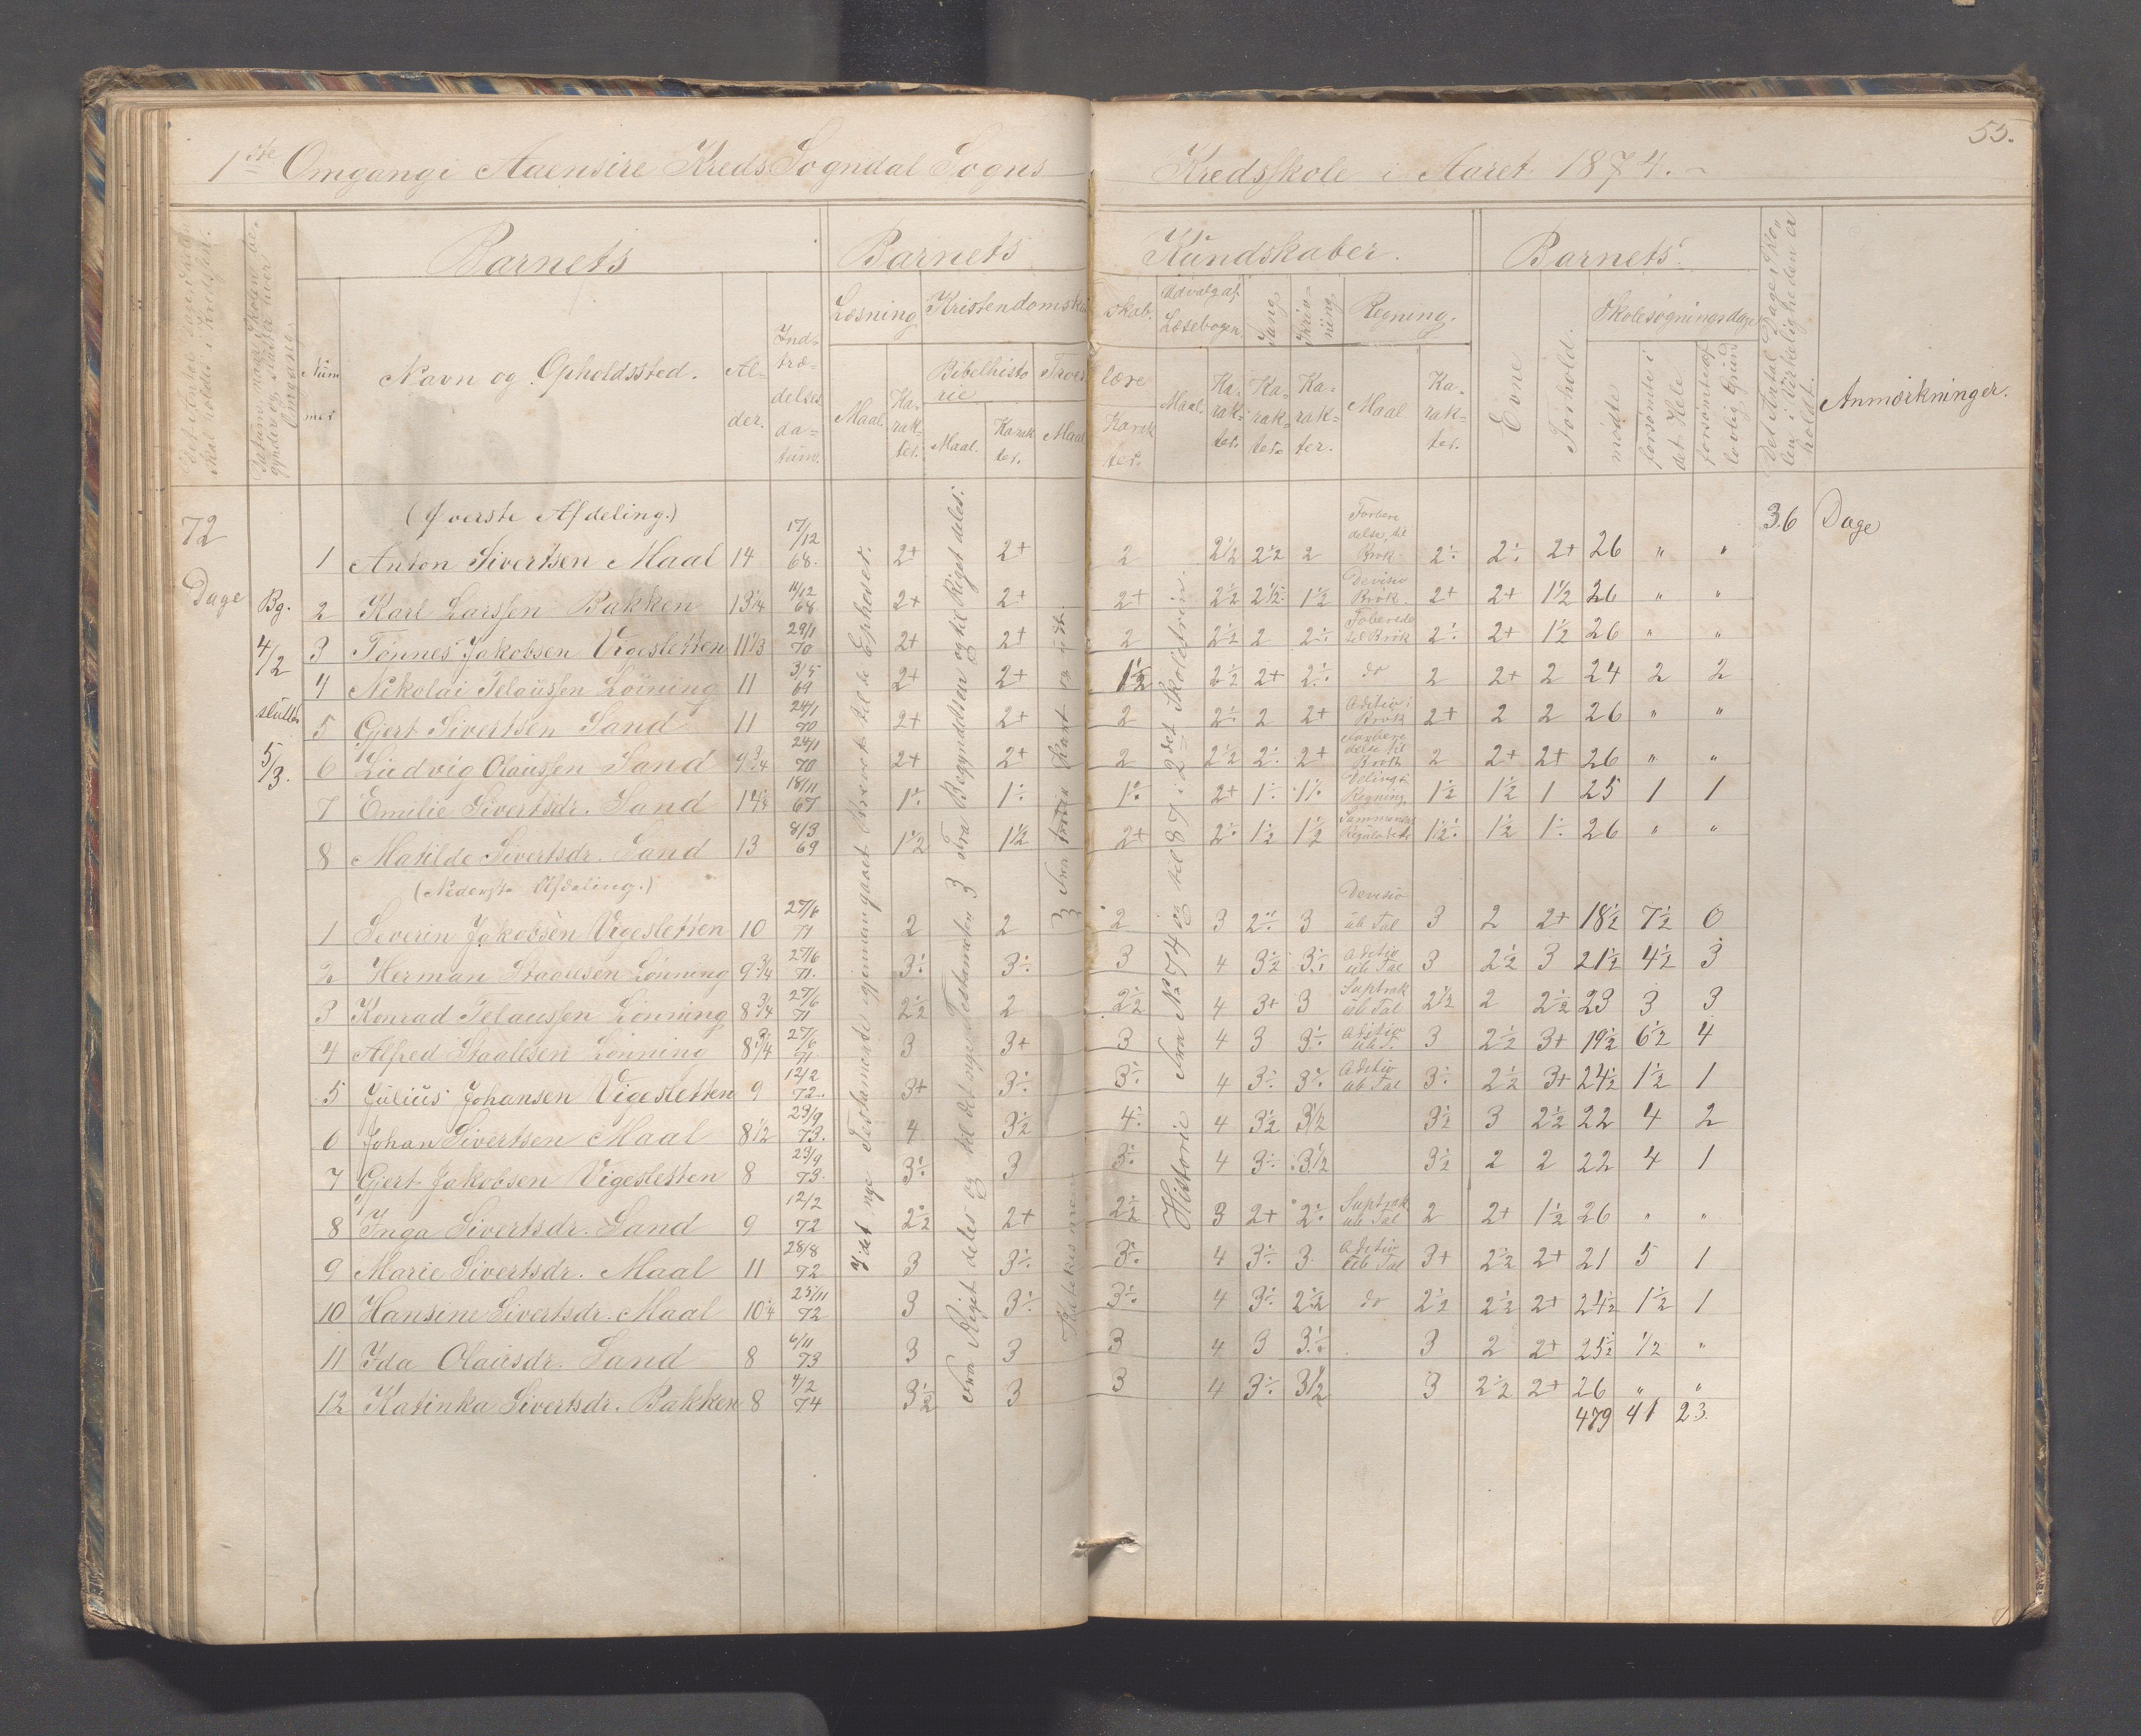 55.
1ste Omgang i Aaensire Kreds Sogndal Sogns Kredsskole i Aaret 1874.
Barnets Barnets Kundskaber. Barnets
Det Antal Dage Skolen skal holdes i Kredsen.
Datum naar Skolen begynder og slutter hver Omgang.
Nummer
Navn og Opholdssted.
Alder.
Indtrædelsesdatum.
Læsning
Maal. Karakter.
Kristendomskundskab.
Bibelhistorie
Maal. Karakter.
Troeslære
Maal Karakter.
Udvalg af Læsebogen.
Maal. Karakter.
Sang. Karakter.
Skrivning. Karakter.
Regning.
Maal Karakter.
Evne
Forhold.
Skolesøgningsdage
mødte
forsømte i det Hele
forsømte af lovlig Grund
Det Antal Dage Skolen i Virkeligheden er holdt.
Anmærkninger.
72 Dage
Bg. 4/2 slutter 5/3.
36 Dage
I det nye Testamente gjennemgaaet
Fra Riget deles og til det nye Testamente
3 Fra Begyndelsen og til Riget deles.
Historie Fra No 74 og til 87 i 2det Skoletrin.
(Øverste Afdeling.)
1 Anton Sivertsen Maal 14 17/12 68. 2+ 2+ 2 2½ 2½ 2 Forberedelse til Brøk 2÷ 2÷ 2+ 26 " "
2 Karl Larssen Bakken 13¼ 11/12 68 2+ 2+ 2+ 2½ 2½ 1½ Devisio Brøk. 2+ 2+ 1½ 26 " "
3 Tønnes Jakobsen Vigesletten 11⅓ 29/1 70 2+ 2+ 2 2½ 2 2÷ Foberede til Brøk 2÷ 2+ 1½ 26 " "
4 Nikolai Pelaussen Løining 11 3/5 69 2+ 2+ 1½ 2½ 2+ 2÷ do 2 2+ 2 24 2 2
5 Gjert Sivertsen Sand 11 24/1 70 2+ 2+ 2 2÷ 2 2+ Aditio i Brøk 2+ 2 2 26 " "
6 Ludvig Olaussen Sand 9¾ 24/1 70 2+ 2+ 2 2½ 2÷ 2+ Forberedelse til Brøk 2 2+ 2+ 26 " "
7 Emilie Sivertsdr. Sand 14½ 18/11 67 1÷ 1÷ 1÷ 2+ 1÷ 1÷ Delings Regning 1½ 1½ 1 25 1 1
8 Matilde Sivertsdr. Sand 13 8/3 69 1½ 1½ 2+ 2÷ 1½ 1½ Sammensat Regulatetri 1½ 1½ 1÷ 26 " "
(Nederste Afdeling.)
1 Severin Jakobsen Vigesletten 10 27/6 71 2 2 2 3 2÷ 3 Devisio ub Tal 3 2 2+ 18½ 7½ 0
2 Herman Staalesen Lønning 9¾ 27/6 71. 3÷ 3÷ 3 4 3½ 3÷ Aditio ub Tal 3 2½ 3 21½ 4½ 3
3 Konrad Pelaussen Lønning 8¾ 27/6 71 2½ 2 2½ 4 3+ 3 Suptrak ub Tal 2½ 2 2½ 23 3 3
4 Alfred Staalesen Lønning 8¾ 27/6 71 3 3+ 3 4 3 3÷ Aditio ub T. 3 2½ 3+ 19½ 6½ 4
5 Julius Johansen Vigesletten 9 12/2 72. 3+ 3÷ 3÷ 4 3÷ 3÷ Aditio ub Tal 3÷ 2½ 3+ 24½ 1½ 1
6 Johan Sivertsen Maal 8½ 23/9 73. 4 3½ 4÷ 4 3½ 3½ 3½ 3 2½ 22 4 2
7 Gjert Jakobsen Vigesletten 8 23/9 73. 3÷ 3 3÷ 4 3÷ 3½ 3½ 2 2 22 4 1
8 Inga Sivertsdr. Sand 9 12/2 72 2½ 2+ 2½ 3 2+ 2÷ Suptrak ub Tal 2 2+ 1½ 26 " "
9 Marie Sivertsdr. Maal 11 28/8 72 3 3÷ 3÷ 4 3÷ 3 Aditio ub Tal 3+ 2½ 2+ 21 5 1
10 Hansine Sivertsdr. Maal 10¼ 25/11 72 3 3÷ 3÷ 4 3÷ 2½ do 2½ 2½ 2+ 24½ 1½ 1
11 Ida Olausdr. Sand 8 6/11 73 3 3 3 4 3 3÷ 3 2 2+ 25½ ½ "
12 Katinka Sivertsdr. Bakken 8 4/2 74 3½ 3 3 4 3÷ 3½ 3 2½ 2+ 26 " "
479 41 23.